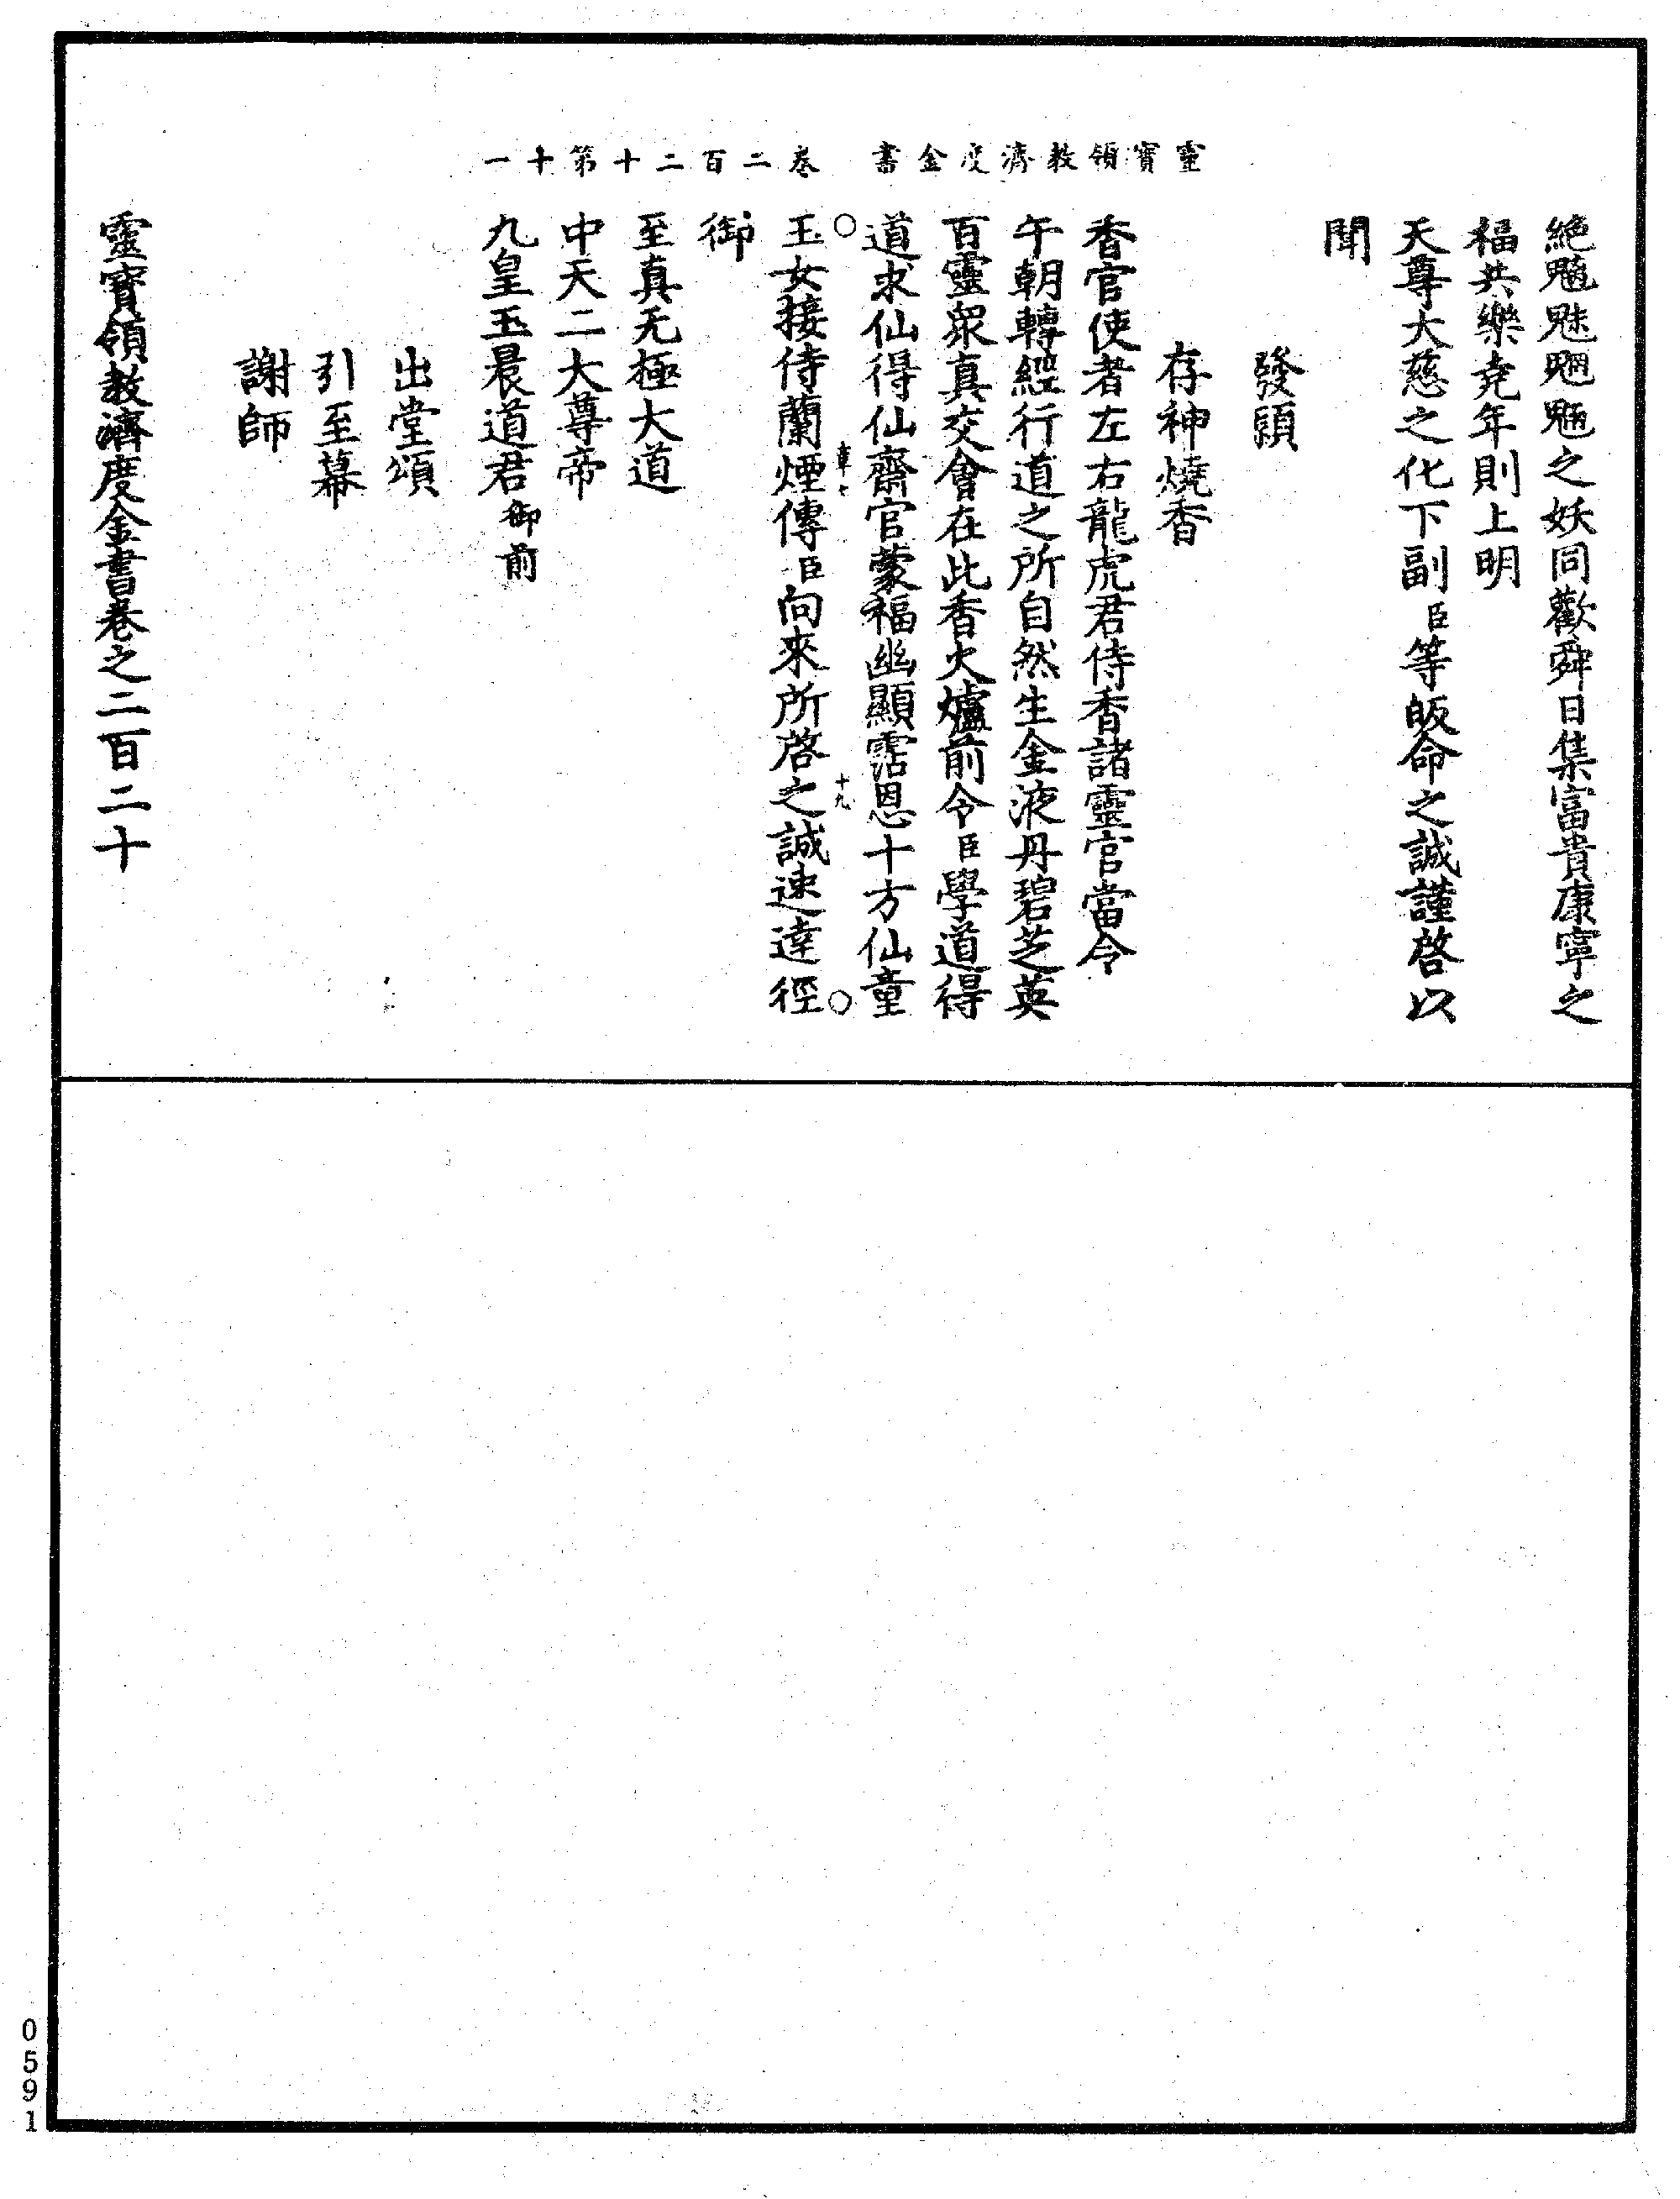 靈寶領教濟度金書 卷二百二十第十一
絶魑魅魍魎之妖同歡舜日集富貴康寧之
福共樂堯年則上明
天尊大慈之化下副臣等皈命之誠謹啓以
聞
發願
存神燒香
香官使者左右龍虎君侍香諸靈官當令
午朝轉經行道之所自然生金液丹碧芝英
百靈衆真交會在此香火爐前令臣學道得
道求仙得仙齋官蒙福幽顯霑恩十方仙童
十九
玉女接侍蘭煙傳臣向來所啓之誠速達徑
御
至真无極大道
中天二大尊帝
九皇玉晨道君御前
出堂頌
引至幕
謝師
靈寶領教濟度金書卷之二百二十
0591